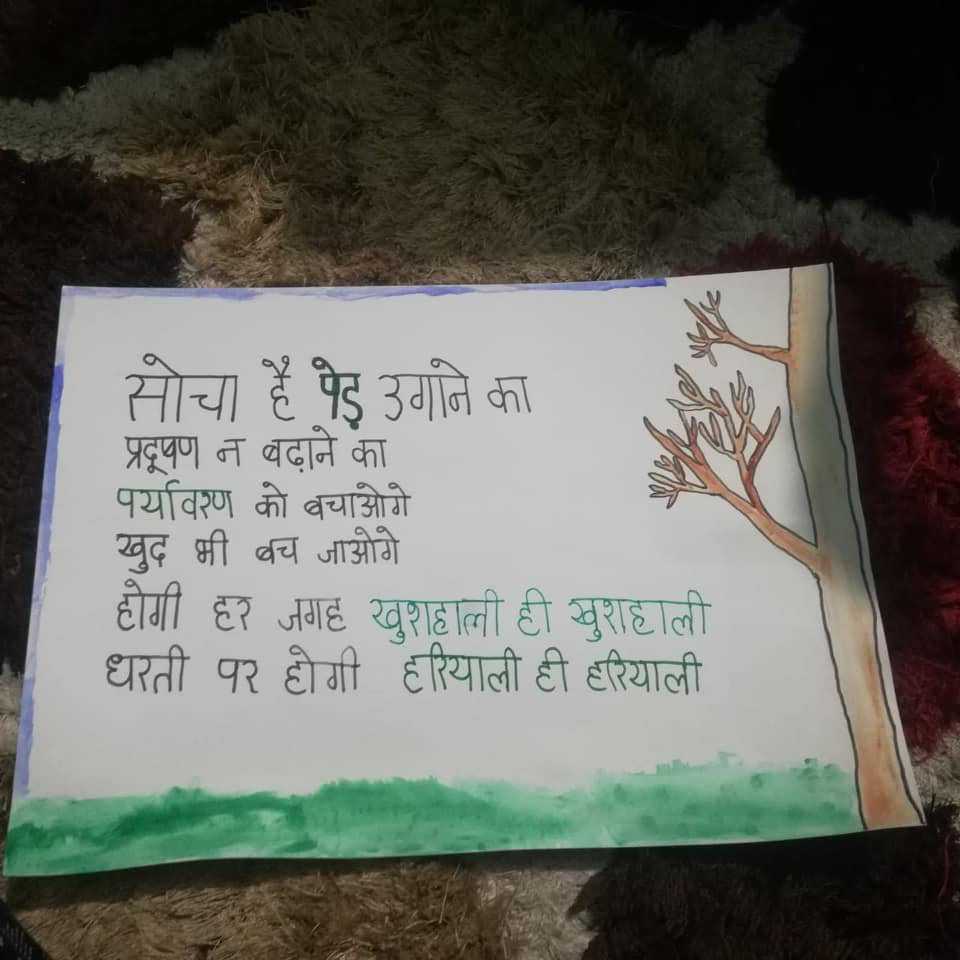 सोचा है पेड़ उगाने का
प्रदूषण न बढ़ाने का
पर्यावरण को बचाओगे
खुद भी बच जाओगे
होगी हर जगह खुशहाली ही खुशहाली
धरती पर होगी हरियाली ही हरियाली